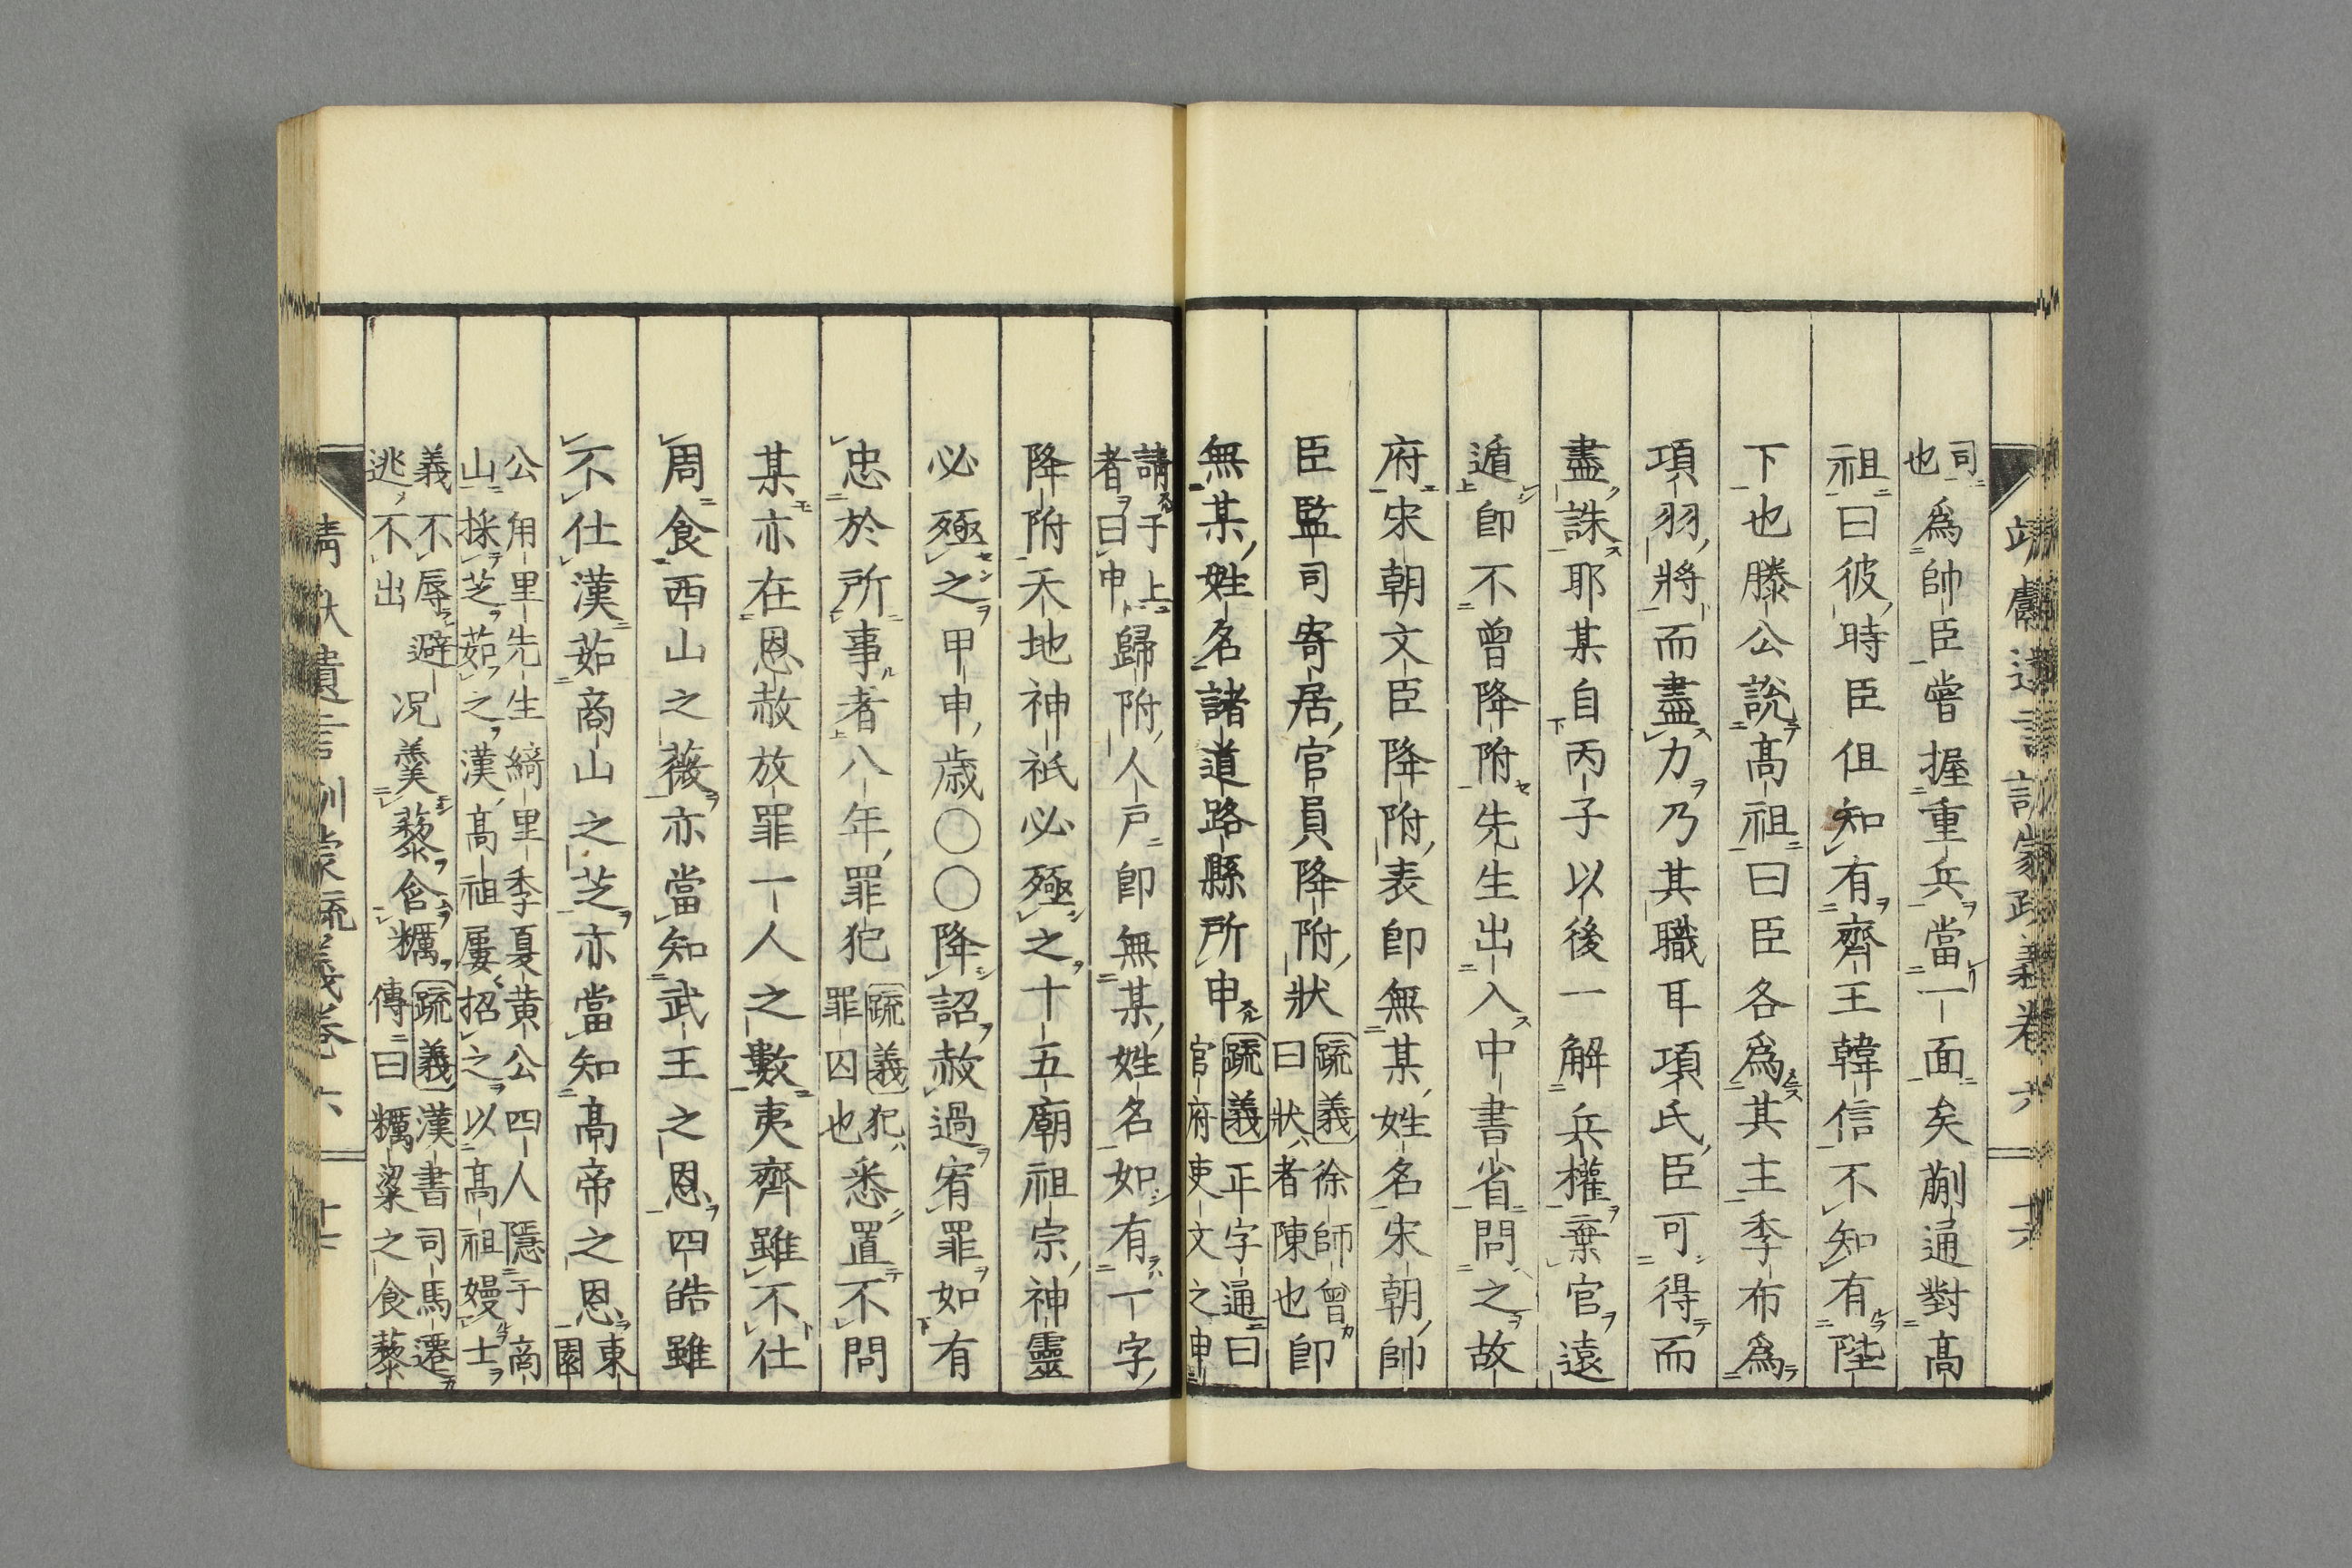 靖獻遺言訓蒙疏義卷六　十六
司也爲帥臣嘗握重兵當一面矣蒯通對髙
祖曰彼時臣但知有齊王韓信不知有陛
下也滕公說髙祖曰臣各爲其主季布爲
項羽將而盡力乃其職耳項氏臣可得而
盡誅耶某自丙子以後一解兵權棄官遠
遁卽不曾降附先生出入中書省問之故
府宋朝文臣降附表卽無某姓名宋朝帥
臣監司寄居官員降附狀疏義徐師曾曰狀者陳也卽
無某姓名諸道路縣所申疏義正字通曰官府吏文之申
請子上者曰申歸附人戶卽無某姓名如有一字
降附天地神祇必殛之十五廟祖宗神靈
必殛之甲申歲〇〇降詔赦過宥罪如有
忠於所事者八年罪犯疏義犯罪囚也悉置不問
某亦在恩赦放罪一人之數夷齊雖不仕
周食西山之薇亦當知武王之恩四皓雖
不仕漢茹商山之芝亦當知髙帝之恩東園
公甪里先生綺里季夏黄公四人隱于商山採芝茹之漢髙祖屢招之以髙祖嫚士
義不辱避逃不出况羹藜含糲疏義漢書司馬遷傳曰糲粱之食藜
靖獻遺言訓蒙疏義卷六　十七